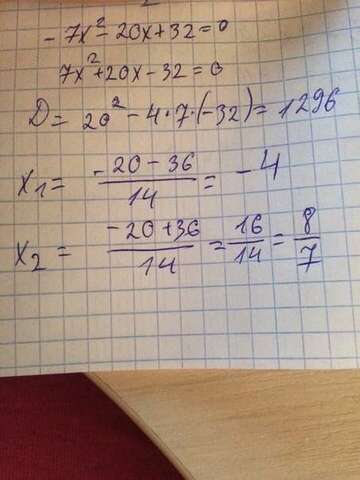 -7x²-20x+32=0
7x²+20x-32=0
D=20²-4·7·(-32)=1296
x₁=(-20-36)/14=-4
x₂=(-20+36)/14=16/14=8/7